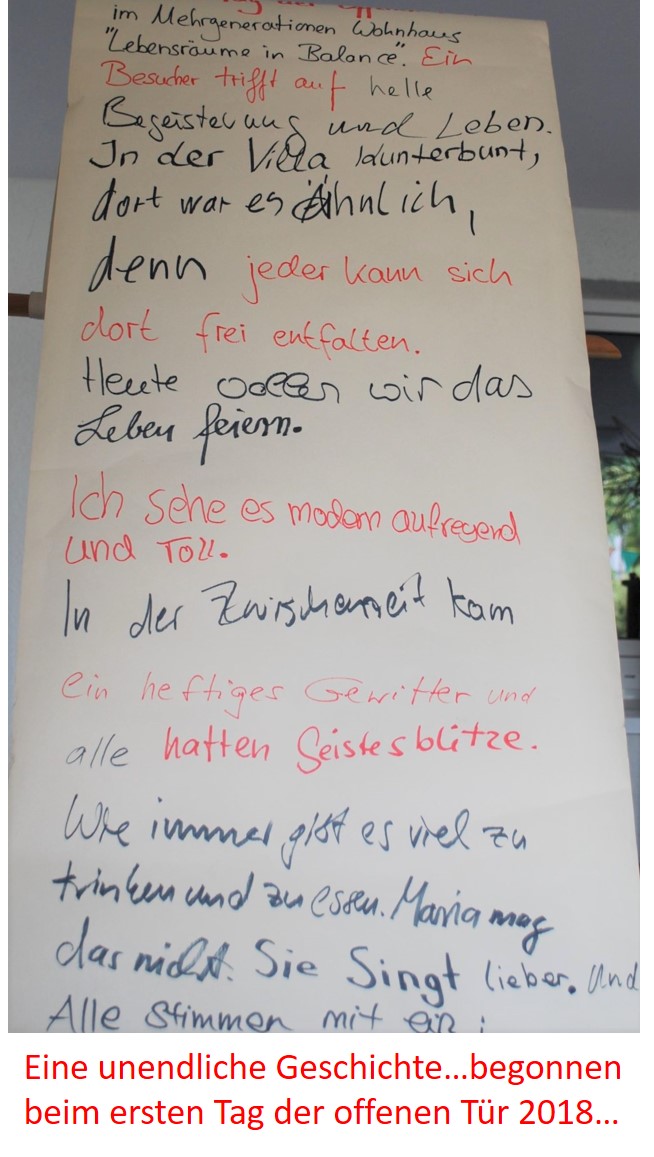 im Mehrgenerationen Wohnhaus
"Lebensräume in Balance". Ein
Besucher trifft auf helle
Begeisterung und Leben.
In der Villa Kunterbunt,
dort war es Ähnlich,
denn jeder kann sich
dort frei entfalten.
Heute wollen wir das
Leben feiern.
Ich sehe es modern aufregend
und Toll.
In der Zwischenzeit kam
ein heftiges Gewitter und
alle hatten Geistesblitze.
Wie immer gibt es viel zu
trinken und zu essen. Maria mag
das nicht. Sie Singt lieber. Und
Alle Stimmen mit ein:
Eine unendliche Geschichte...begonnen
beim ersten Tag der offenen Tür 2018...